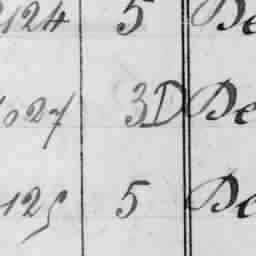 124 5 De
1027 3D De
125 5 De